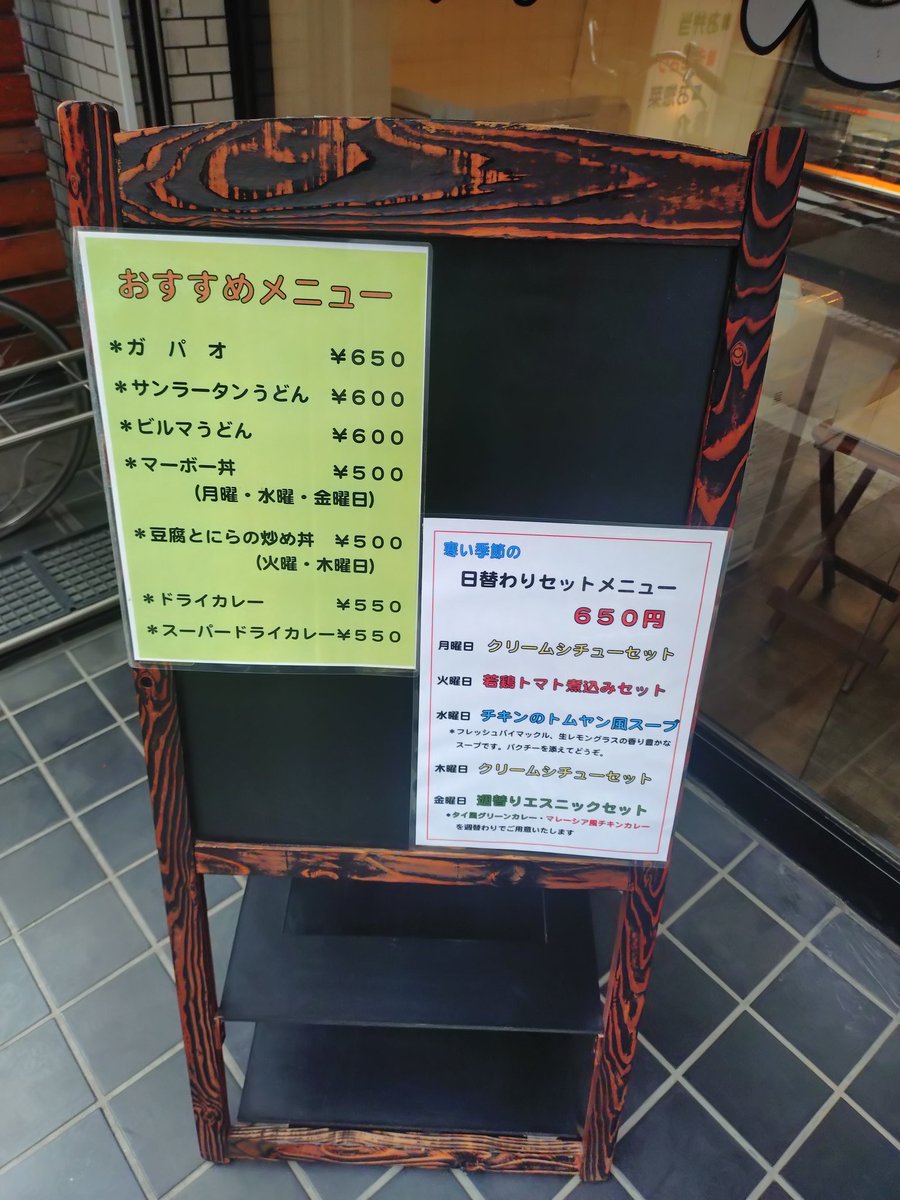 おすすめメニュー
＊ガ　パ　オ　￥６５０
＊サンラータンうどん　￥６００
＊ビルマうどん　￥６００
＊マーボー丼　￥５００
（月曜・水曜・金曜日）
＊豆腐とにらの炒め丼　￥５００
（火曜・木曜日）
＊ドライカレー　￥５５０
＊スーパードライカレー￥５５０
寒い季節の
日替わりセットメニュー
６５０円
月曜日　クリームシチューセット
火曜日　若鶏トマト煮込みセット
水曜日　チキンのトムヤン風スープ
＊フレッシュバイマックル、生レモングラスの香り豊かな
スープです。パクチーを添えてどうぞ。
木曜日　クリームシチューセット
金曜日　週替りエスニックセット
＊タイ風グリーンカレー・マレーシア風チキンカレー
を週替わりでご用意いたします
お弁当
お惣菜